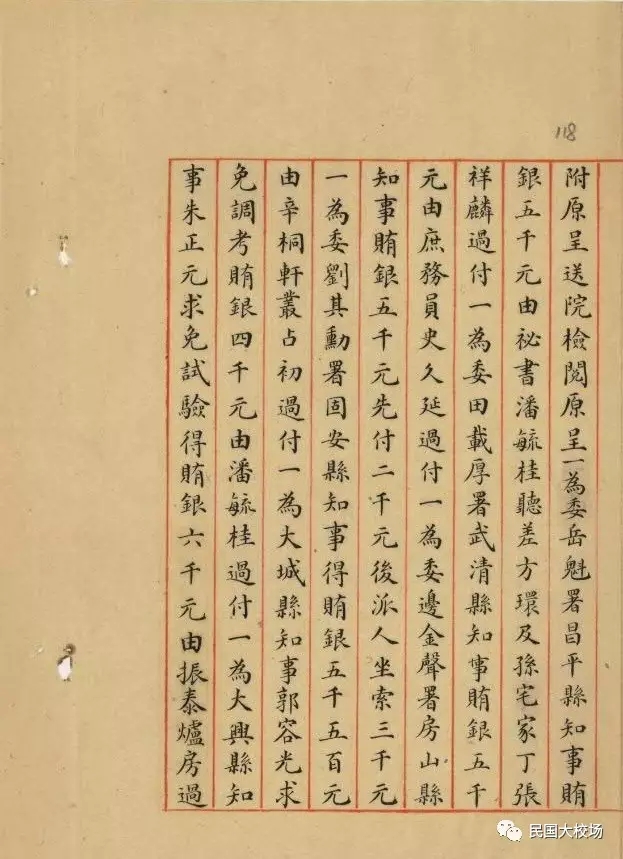 118
附原呈送院檢閱原呈一為委岳魁署昌平縣知事賄
銀五千元由祕書潘毓桂聽差方環及孫宅家丁張
祥麟過付一為委田載厚署武清縣知事賄銀五千
元由庶務員史久延過付一為委邊金聲署房山縣
知事賄銀五千元先付二千元後派人坐索三千元
一為委劉其勳署固安縣知事得賄銀五千五百元
由辛桐軒叢占初過付一為大城縣知事郭容光求
免調考賄銀四千元由潘毓桂過付一為大興縣知
事朱正元求免試驗得賄銀六千元由振泰爐房過
民国大校场